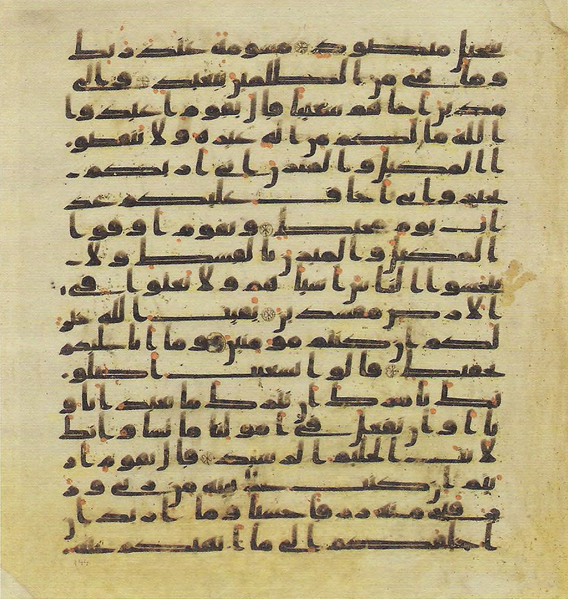 سجيل منضود مسومة عند ربك
وما هي من الظلمين ببعيد والى
مدين اخاهم شعيبا قال يقوم اعبدوا
الله ما لكم من اله غيره ولا تنقصو
ا المكيل والميزن اني اريكم
بخير واني اخاف عليكم عذ
اب يوم محيط ويقوم اوفوا
المكيل والميزن بالقسط ولا
تبخسوا الناس اشياهم ولا تعثوا في
الارض مفسدين بقيت الله خير
لكم ان كنتم مومنين وما انا عليكم
بحفيظ قالوا يشعيب اصلو
تك تامرك ان نترك ما يعبد اباو
نا او ان نفعل في امولنا ما نشا انك
لانت الحليم الرشيد قال يقوم ار
يتم ان كنت على بينة من ربي ور
زقني منه رزقا حسنا وما اريد ان
اخالفكم الى ما انهيكم عنه